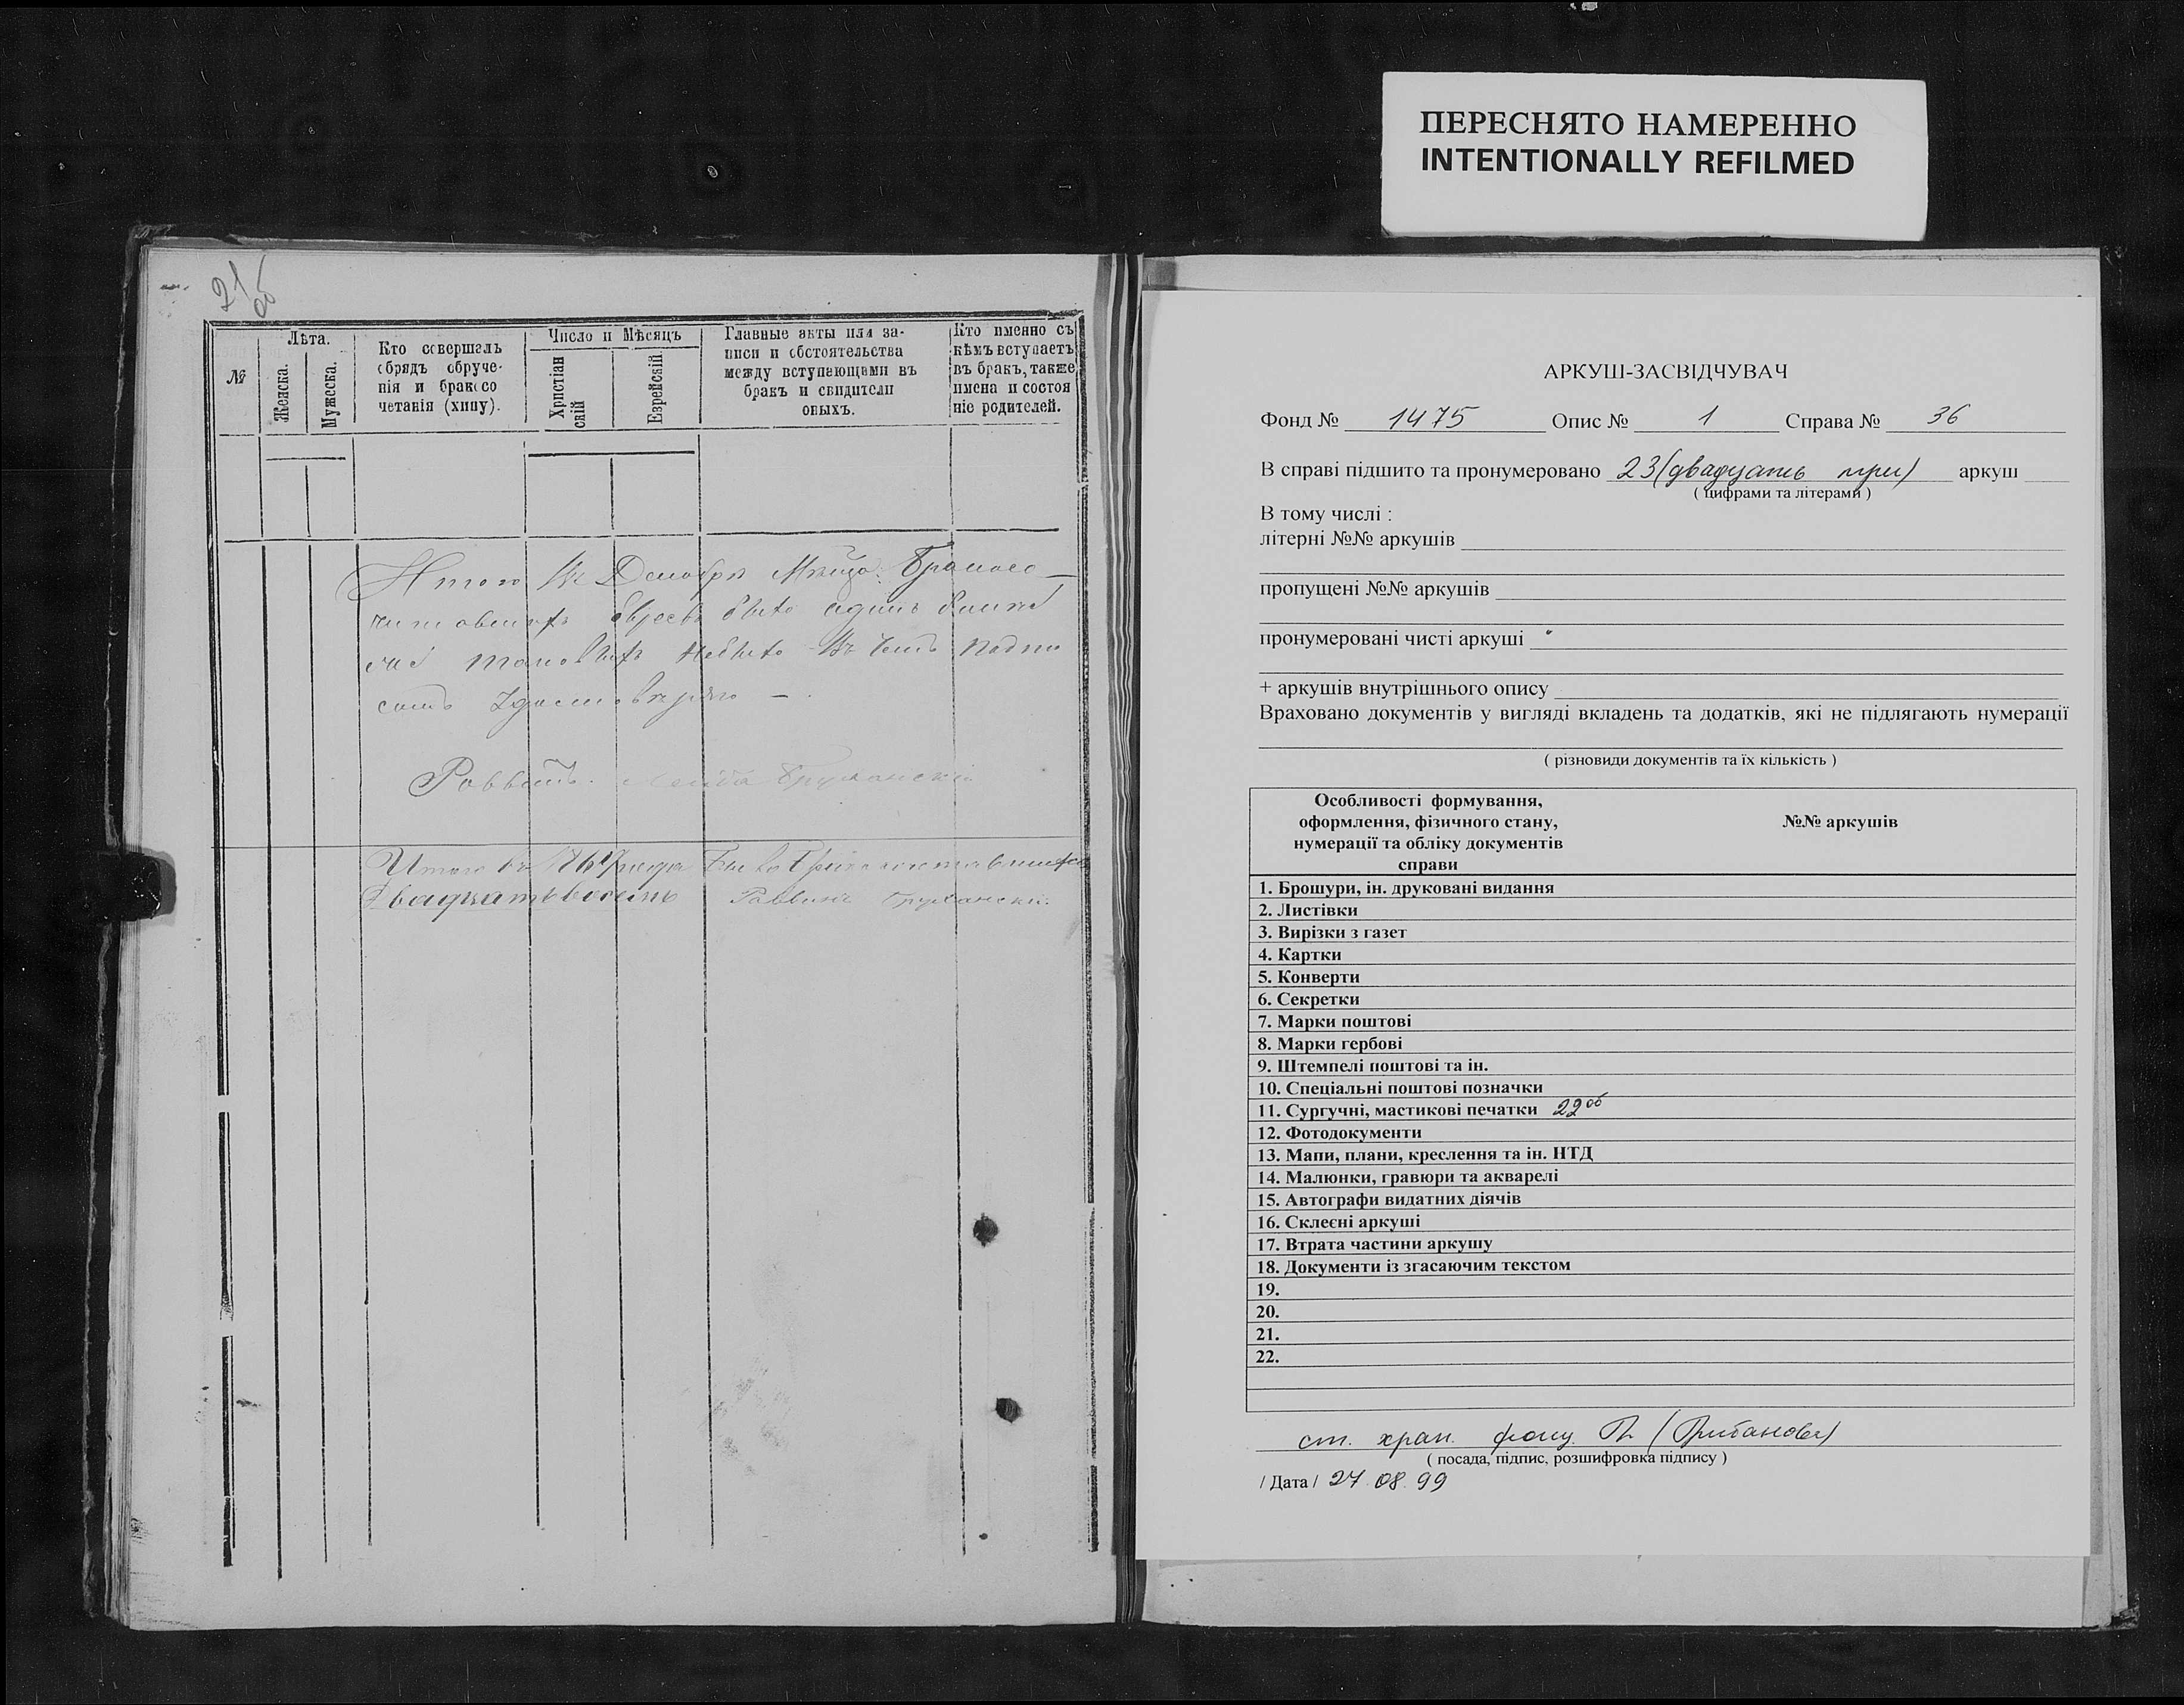 ПЕРЕСНЯТО НАМЕРЕННО
INTENTIONALLY REFILMED
21
об
№
Лѣта.
Женска.
Мужеска.
Кто совершалъ
обрядъ обруче-
нія и бракосо
четанія (хипу).
Число и Мѣсяцъ
Христіан
скій
Еврейскій
Главные акты или за-
писи и обстоятельства
между вступающими въ
бракъ и свидители
оныхъ.
Кто именно съ
кѣмъ вступаетъ
въ бракъ, также
имена и состоя
ніе родителей.
Итого въ Декабрѣ
было одинъ
небыло въ чемъ подпи
Раввинъ
Итого въ года
Двадцать восемь Раввинъ
АРКУШ-ЗАСВІДЧУВАЧ
Фонд № 1475 Опис № 1 Справа № 36
В справі підшито та пронумеровано 23 (двадцать три) аркуш
( цифрами та літерами )
В тому числі :
літерні №№ аркушів
пропущені №№ аркушів
пронумеровані чисті аркуші
+ аркушів внутрішнього опису
Враховано документів у вигляді вкладень та додатків, які не підлягають нумерації
( різновиди документів та їх кількість )
Особливості формування,
оформлення, фізичного стану,
нумерації та обліку документів
справи
№№ аркушів
1. Брошури, ін. друковані видання
2. Листівки
3. Вирізки з газет
4. Картки
5. Конверти
6. Секретки
7. Марки поштові
8. Марки гербові
9. Штемпелі поштові та ін.
10. Спеціальні поштові позначки
11. Сургучні, мастикові печатки 22 об
12. Фотодокументи
13. Мапи, плани, креслення та ін. НТД
14. Малюнки, гравюри та акварелі
15. Автографи видатних діячів
16. Склеєні аркуші
17. Втрата частини аркушу
18. Документи із згасаючим текстом
19.
20.
21.
22.
ст. хран.
( посада, підпис, розшифровка підпису )
/ Дата / 27.08.99